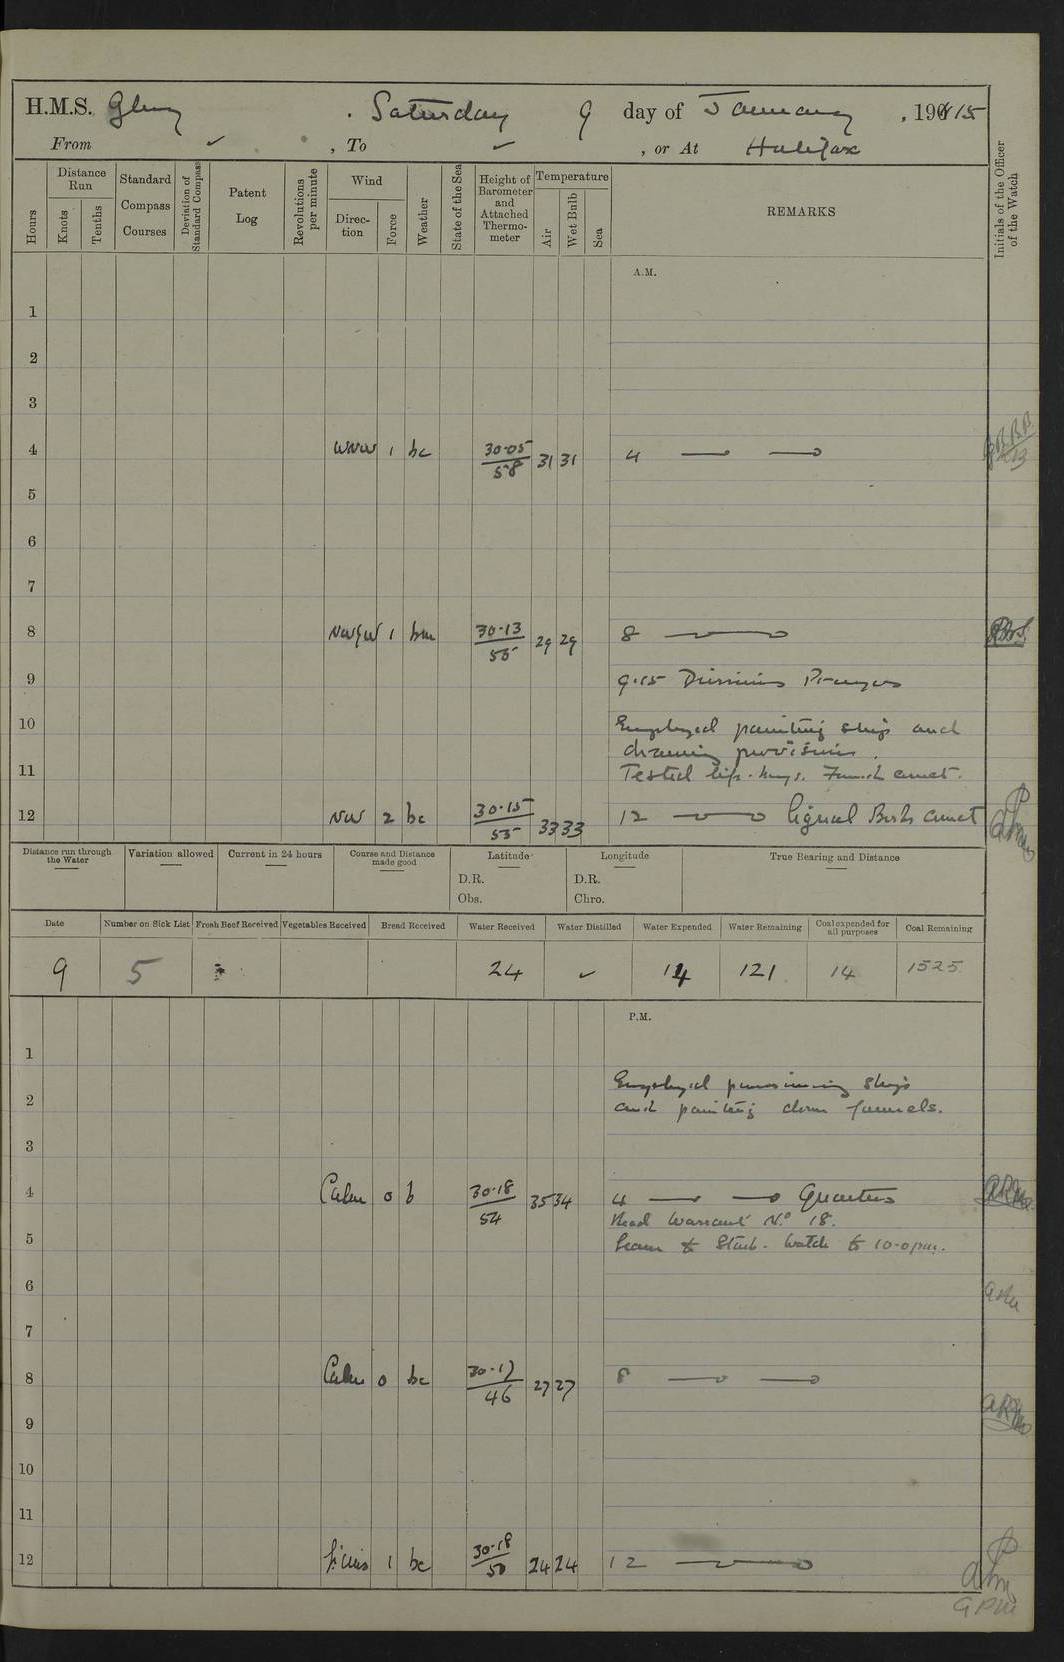 H.M.S. Glory . Saturday 9 day of January , 1915
From ✓ , To ✓ , or At Halifax
Hours
Distance Run
Knots
Tenths
Standard Compass Courses
Deviation of Standard Compass
Patent Log
Revolutions per minute
Wind
Direction
Force
Weather
State of the Sea
Height of Barometer and Attached Thermometer
Temperature
Air
Wet Bulb
Sea
REMARKS
Initials of the Officer of the Watch
A.M.
1
2
3
4 WNW 1 bc 30·05/58 31 31 4
5
6
7
8 NWyW 1 bm 30·13/55 29 29 8
9 9·15 Divisions Prayers
10 Employed painting ship and
drawing provisions.
11 Tested life-buoys. Found correct.
12 NW 2 bc 30·15/55 33 33 12 Signal Books correct
Distance run through the Water
Variation allowed
Current in 24 hours
Course and Distance made good
Latitude
D.R.
Obs.
Longitude
D.R.
Chro.
True Bearing and Distance
Date Number on Sick List Fresh Beef Received Vegetables Received Bread Received Water Received Water Distilled Water Expended Water Remaining Coal expended for all purposes Coal Remaining
9 5 24 ✓ 14 121 14 1525
P.M.
1
Employed provisioning ship
2 and painting down funnels.
3
4 Calm 0 b 30·18/54 35 34 4 Quarters
Read Warrant No 18.
5 Leave to Starb. Watch to 10-0 pm.
6
7
8 Calm 0 bc 30·17/46 27 27 8
9
10
11
12 1 bc 30·18/50 24 24 12